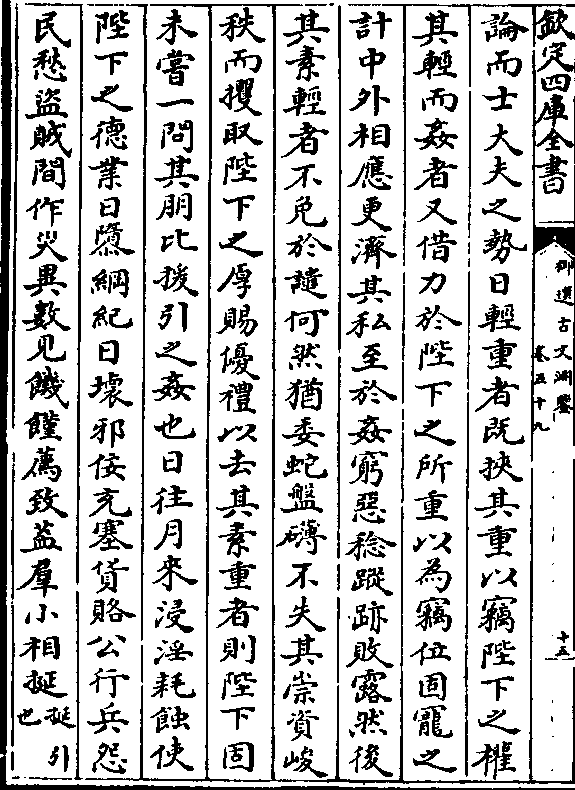 欽定四庫全書
御選古文淵鑒
卷五十九
十五
論而士大夫之勢日輕重者既挾其重以竊陛下之權
其輕而姦者又借力於陛下之所重以為竊位固寵之
計中外相應更濟其私至於姦窮惡稔蹤跡敗露然後
其素輕者不免於譴何然猶委蛇盤礴不失其崇資峻
秩而攫取陛下之厚賜優禮以去其素重者則陛下固
未嘗一問其朋比援引之姦也日往月來浸淫耗蝕使
陛下之德業日隳綱紀日壞邪佞充塞貨賂公行兵怨
民愁盜賊間作災異數見饑饉薦致蓋羣小相挻挻引也